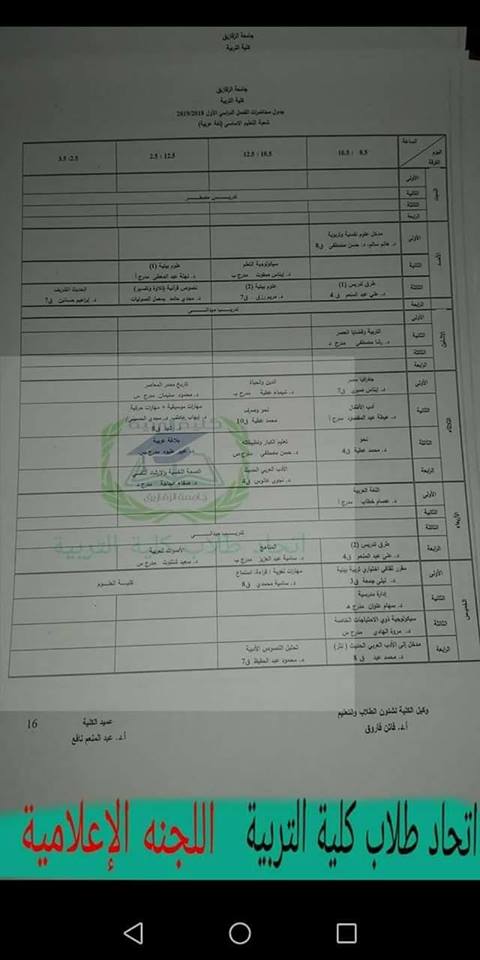 جامعة الزقازيق
كلية التربية
جامعة الزقازيق
كلية التربية
جدول محاضرات الفصل الدراسي الأول 2019/2018
شعبة التعليم الاساسي (لغة عربية)
الساعة
اليوم
الفرقة
8.5 : 10.5
10.5 : 12.5
12.5 : 2.5
2.5 : 3.5
السبت
الأولى
الثانية
تدريس مصغر
الثالثة
الرابعة
الأحد
الأولى
مدخل علوم نفسية وتربوية
د. هانم سالم، د. حسن مصطفى ق8
الثانية
سيكولوجية التعلم
علوم بيئية (1)
الثالثة
طرق تدريس (1)
د. علي عبد المنعم ق4
علوم بيئية (2)
د. مريم رزق ق7
نصوص قرآنية (تلاوة وتفسير)
د. مجدي حامد معمل الصوتيات
الحديث الشريف
د. إبراهيم حسانين ق7
الرابعة
تدريب ميداني
الاثنين
الأولى
الثانية
التربية وقضايا العصر
د. رشا مصطفى مدرج د
الثالثة
الرابعة
الثلاثاء
الأولى
جغرافيا مصر
الدين والحياة
د. شيماء عطية مدرج ب
تاريخ مصر المعاصر
د. محمود سليمان مدرج س
الثانية
أدب الأطفال
د. عطية عبد المقصود مدرج أ
نحو وصرف
محمد عطية ق10
مهارات موسيقية + مهارات حركية
الثالثة
نحو
د. محمد عطية ق4
تعليم الكبار وتطبيقاته
د. حسن مصطفى مدرج س
بلاغة عربية
الرابعة
الأدب العربي الحديث
الصحة النفسية والإرشاد النفسي
الأربعاء
الأولى
اللغة العربية
د. عصام خطاب مدرج أ
الثانية
الثالثة
تدريب ميداني
الرابعة
طرق تدريس (2)
د. علي عبد المنعم ق4
المناهج
د. سامية عبد العزيز مدرج ب
الأصول
مدرج س
الخميس
الأولى
مقرر ثقافي اختياري تربية بيئية
د. ليلى جمعة ق3
مهارات لغوية / قراءة، استماع
د. سامية محمدي ق8
كلية العلوم
الثانية
إدارة مدرسية
د. سهام علوان مدرج هـ
الثالثة
سيكولوجية ذوي الاحتياجات الخاصة
د. مروة الهادي مدرج س
الرابعة
مدخل إلى الأدب العربي الحديث (نثر)
د. محمد عيد ق8
تحليل النصوص الأدبية
د. محمود عبد الحفيظ ق7
وكيل الكلية لشئون الطلاب والتعليم
أ.د. فاتن فاروق
عميد الكلية
أ.د. عبد المنعم نافع
16
كلية التربية
جامعة الزقازيق
اتحاد طلاب كلية التربية
اتحاد طلاب كلية التربية اللجنه الإعلامية